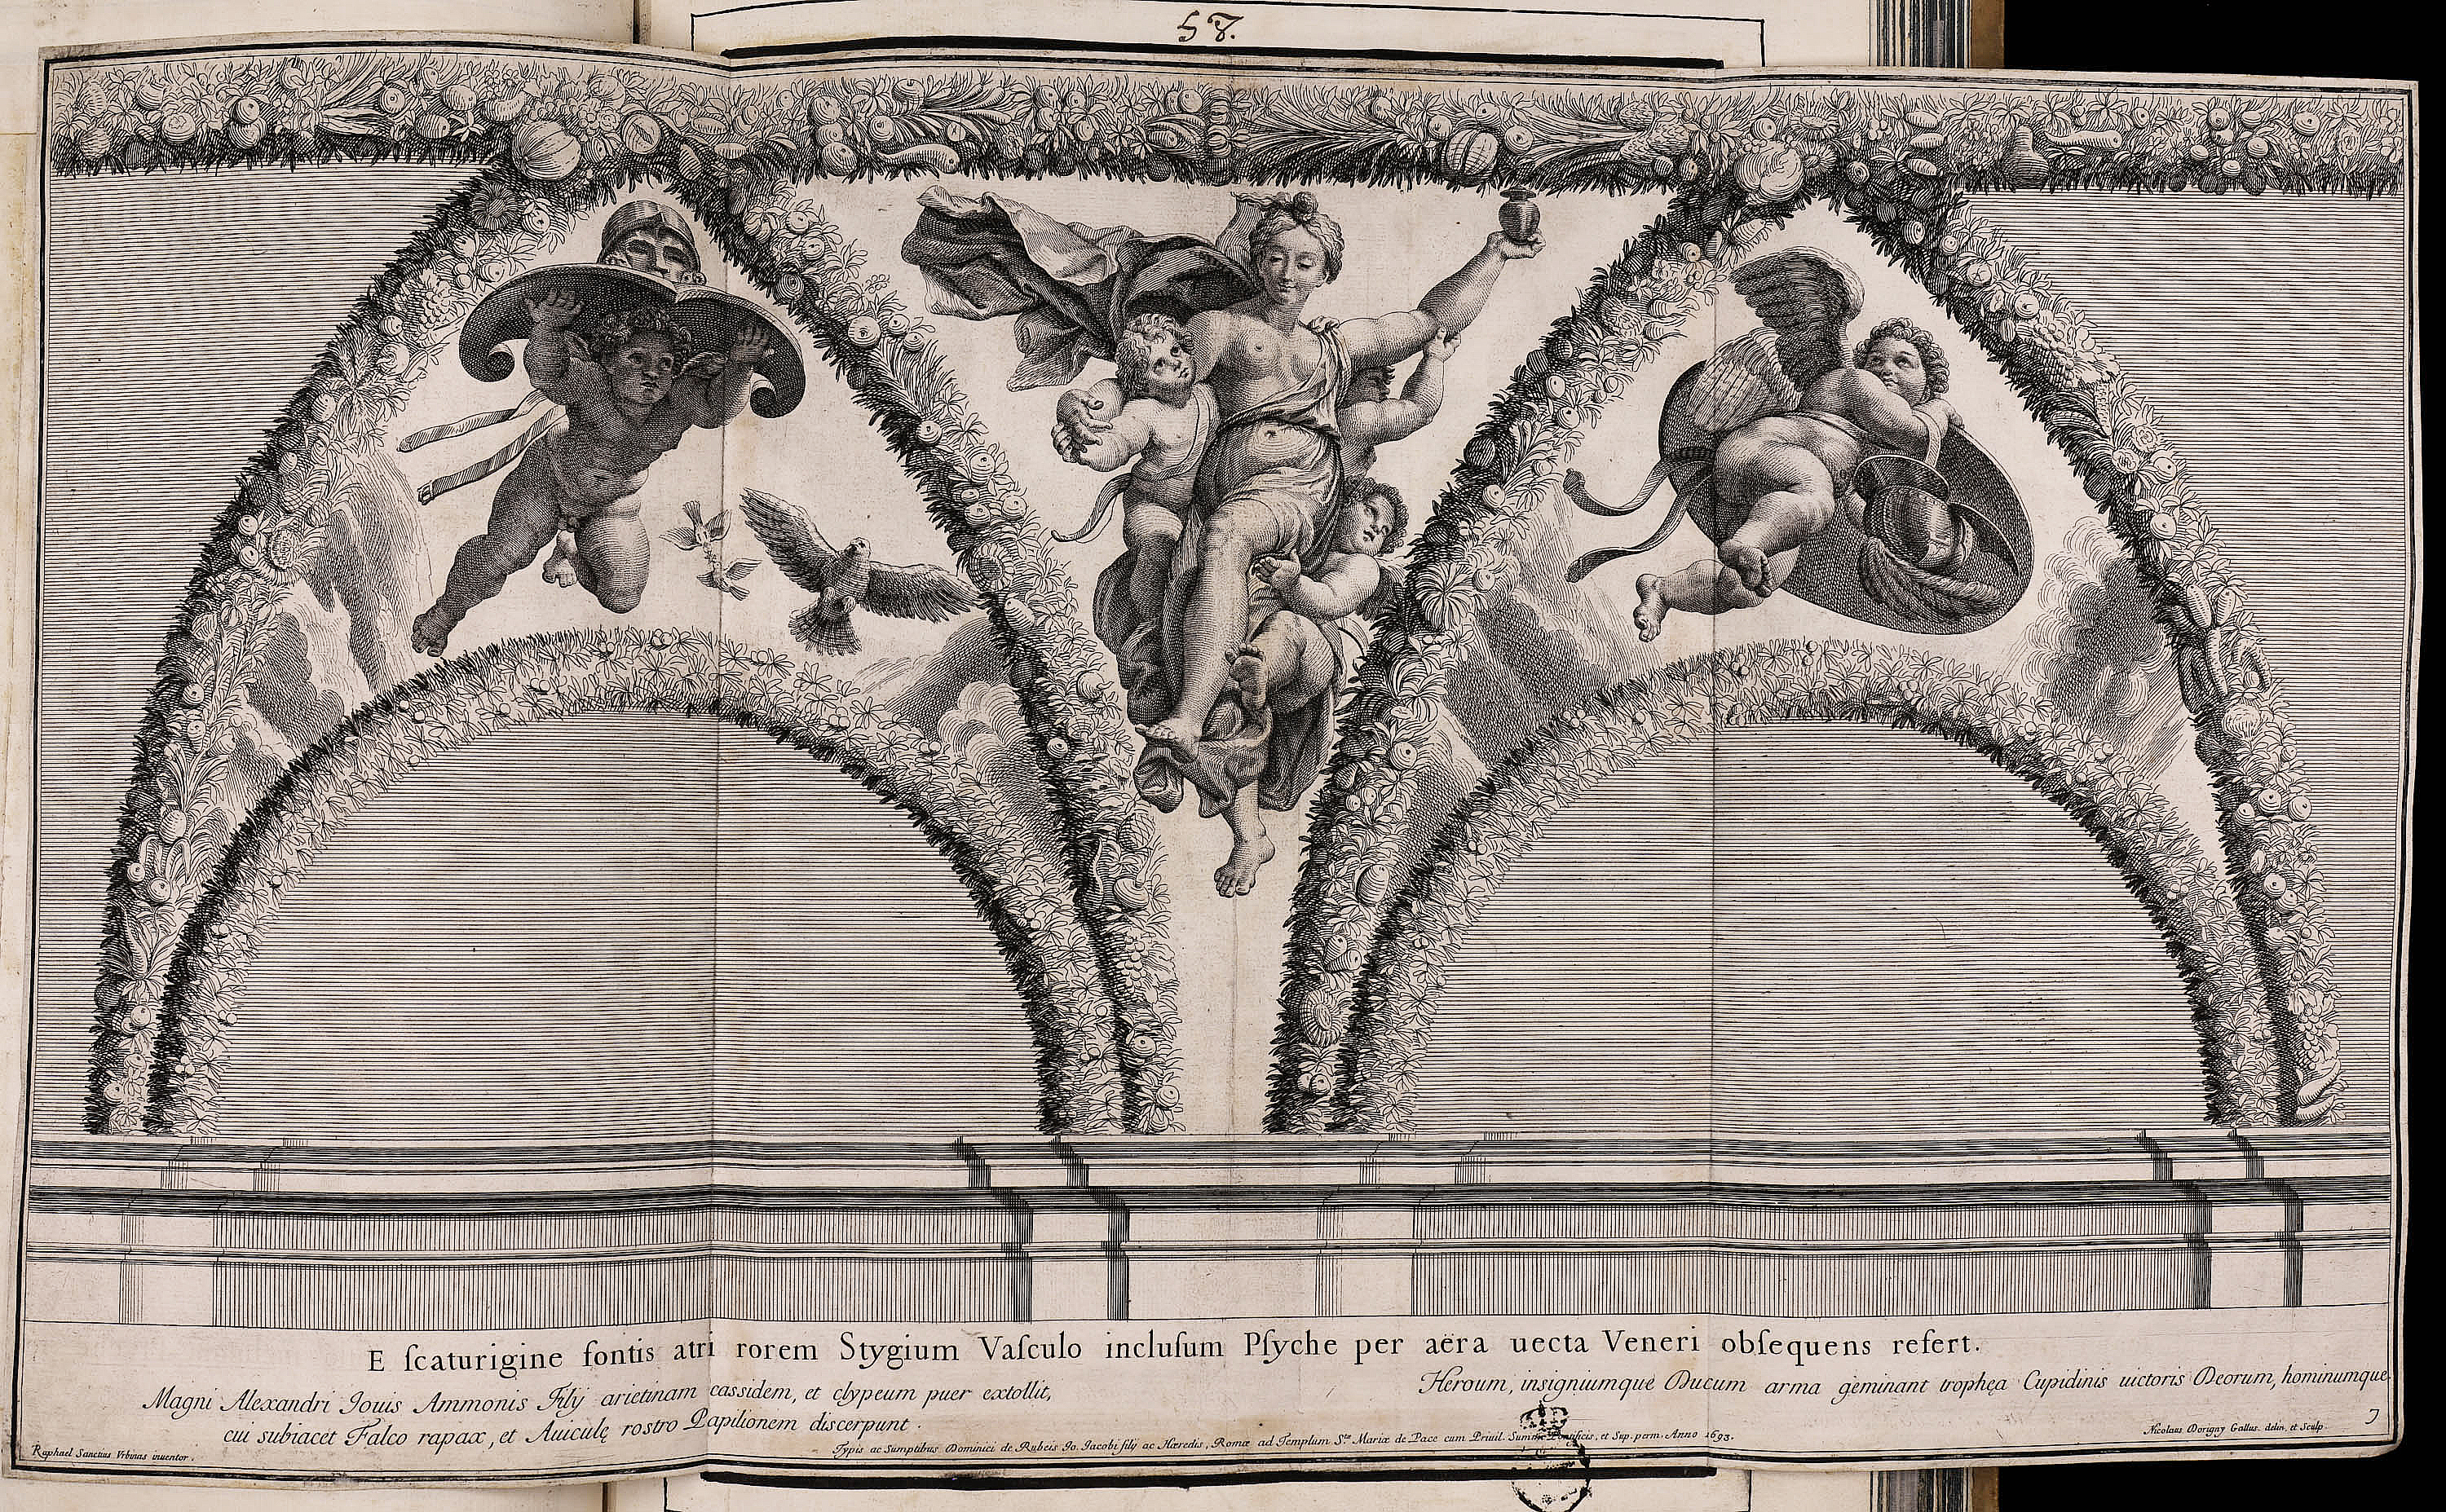 58.
E ſcaturigine fontis atri rorem Stygium Vaſculo incluſum Pſyche per aëra uecta Veneri obſequens refert.
Magni Alexandri Iouis Ammonis Filÿ arietinam cassidem, et clypeum puer extollit,
cui subiacet Falco rapax, et Auiculę rostro Papilionem discerpunt.
Heroum, insigniumque Ducum arma geminant trophęa Cupidinis uictoris Deorum, hominumque
Raphael Sanctius Vrbinas inuentor.
Typis ac Sumptibus Dominici de Rubeis Io. Iacobi filÿ ac Hæredis, Romæ ad Templum S.tæ Mariæ de Pace cum Priuil. Summi Pontificis, et Sup. perm. Anno 1693.
Nicolaus Dorigny Gallus. delin. et Sculp.